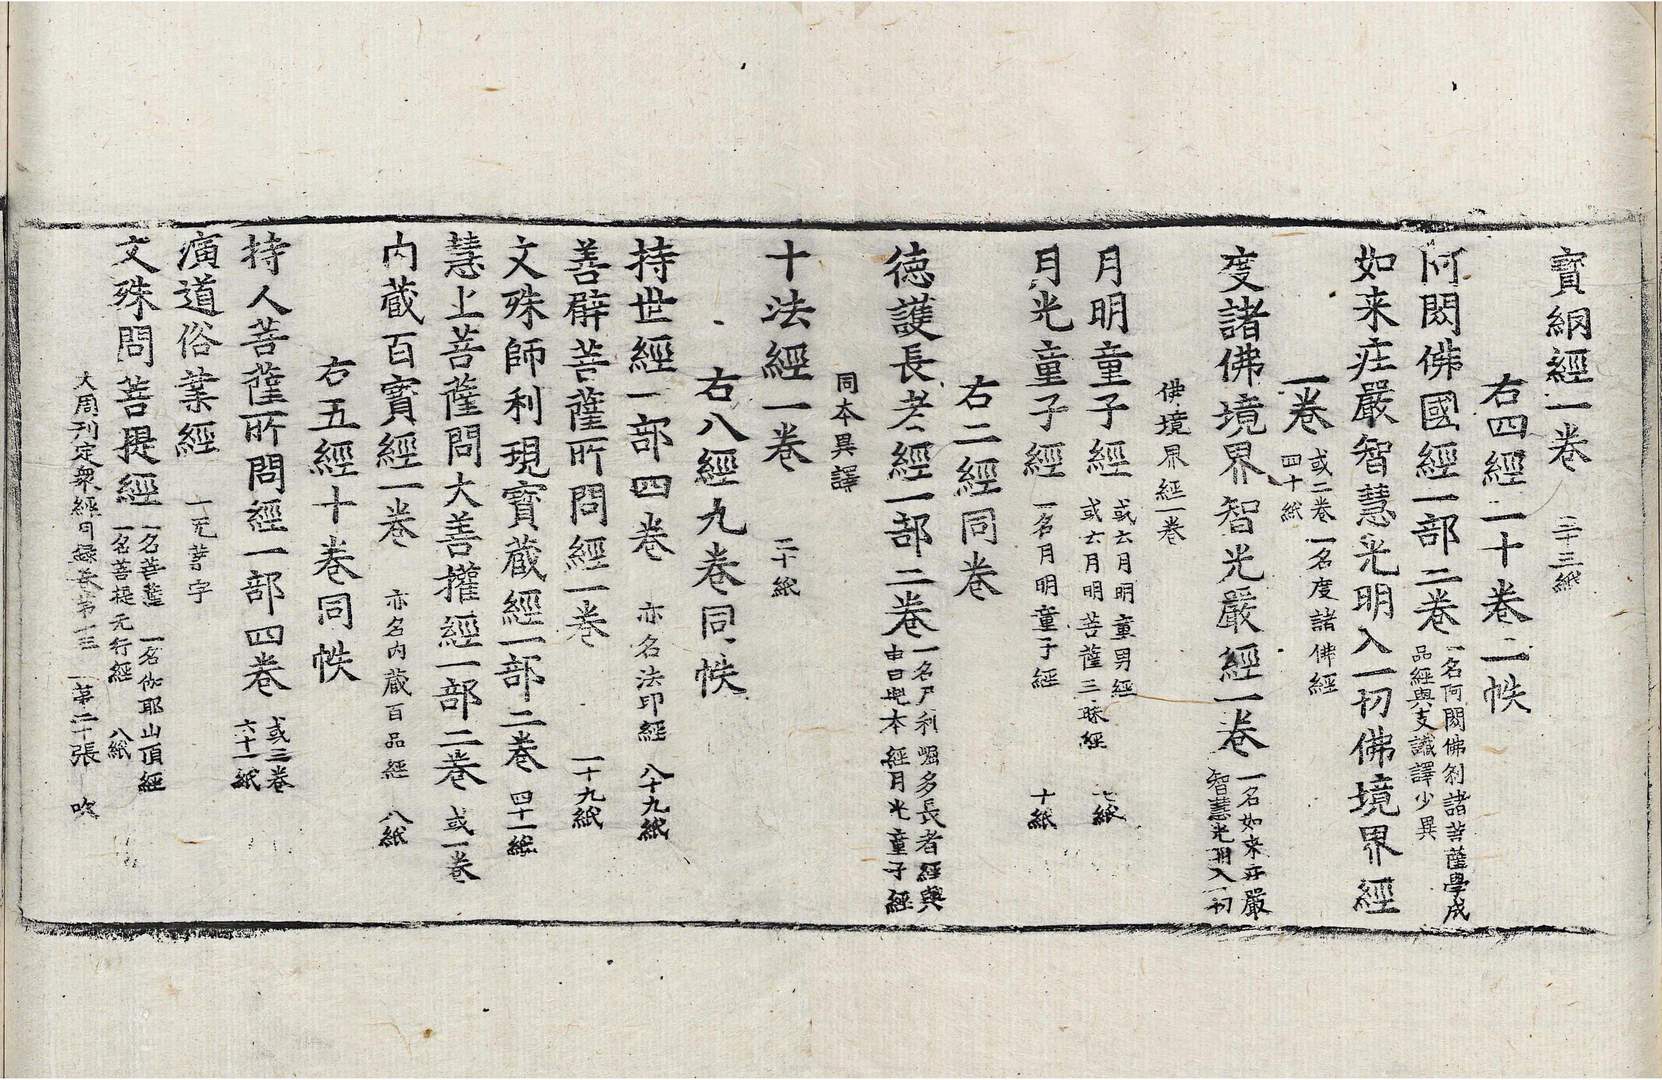 寶網經一卷 二十三紙
右四經二十卷二帙
阿閦佛國經一部二卷 一名阿閦佛刹諸菩薩學成
品經與支讖譯少異
如来庄嚴智慧光明入一切佛境界經
一卷 或二卷一名度諸佛經
四十紙
度諸佛境界智光嚴經一卷 一名如来庄嚴
智慧光明入一切
佛境界經一卷
月明童子經 或云月明童男經
或云月明菩薩三昧經 七紙
月光童子經 一名月明童子經 十紙
右二經同卷
徳護長者經一部二卷 一名尸利崛多長者經與
申日兜本經月光童子經
同本異譯
十法經一卷 二十紙
右八經九卷同帙
持世經一部四卷 亦名法印經 八十九紙
善臂菩薩所問經一卷 一十九紙
文殊師利現寶蔵經一部二卷 四十一紙
慧上菩薩問大善攉經一部二卷 或一卷
内蔵百寶經一卷 亦名内蔵百品經 八紙
右五經十卷同帙
持人菩薩所問經一部四卷 或三卷
六十一紙
演道俗業經 一无業字
文殊問菩提經 一名菩薩 一名伽耶山頂經
一名菩提无行經 八紙
大周刊定衆經目錄卷第十三 第二十張 吹